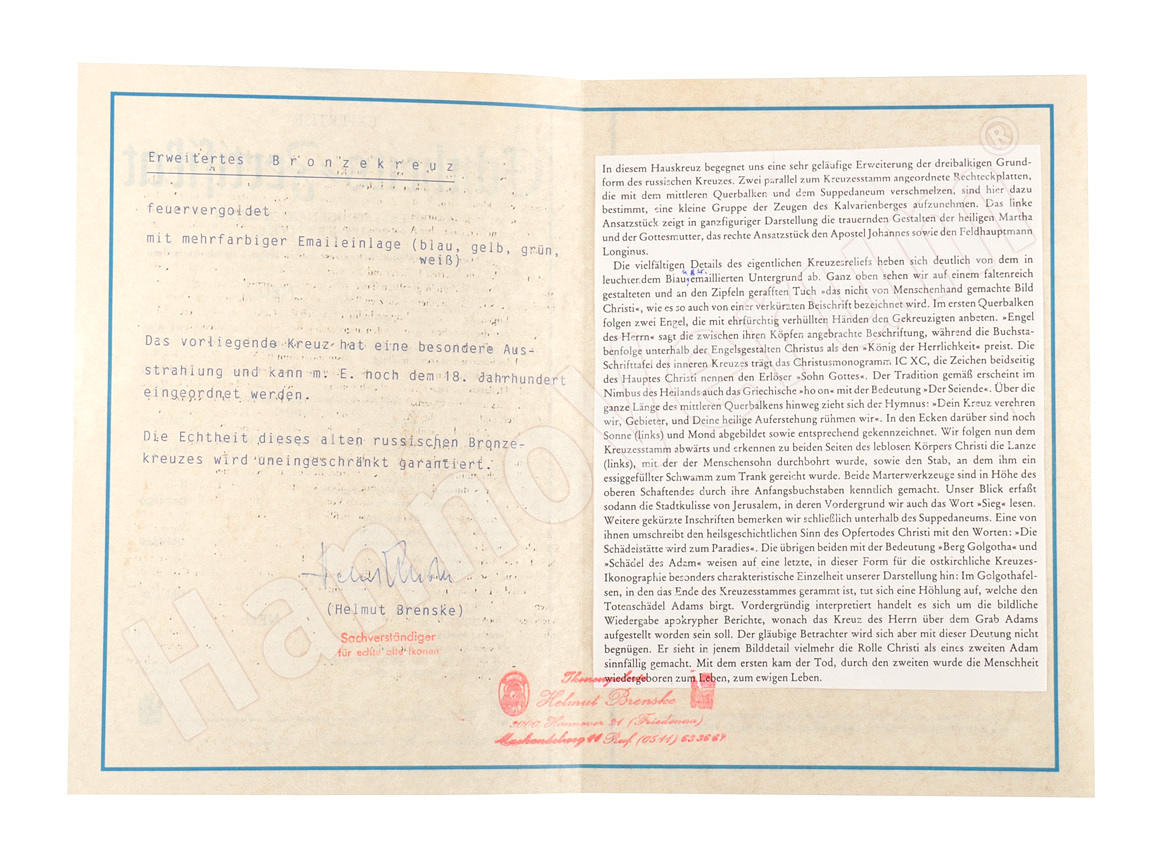 Erweitertes Bronzekreuz
feuervergoldet
mit mehrfarbiger Emaileinlage (blau, gelb, grün,
weiß)
Das vorliegende Kreuz hat eine besondere Aus-
strahlung und kann m. E. noch dem 18. Jahrhundert
eingeordnet werden.
Die Echtheit dieses alten russischen Bronze-
kreuzes wird uneingeschränkt garantiert.
(Helmut Brenske)
Sachverständiger
für echte alte Ikonen
In diesem Hauskreuz begegnet uns eine sehr geläufige Erweiterung der dreibalkigen Grund-
form des russischen Kreuzes. Zwei parallel zum Kreuzesstamm angeordnete Rechteckplatten,
die mit dem mittleren Querbalken und dem Suppedaneum verschmelzen, sind hier dazu
bestimmt, eine kleine Gruppe der Zeugen des Kalvarienberges aufzunehmen. Das linke
Ansatzstück zeigt in ganzfiguriger Darstellung die trauernden Gestalten der heiligen Martha
und der Gottesmutter, das rechte Ansatzstück den Apostel Johannes sowie den Feldhauptmann
Longinus.
Die vielfältigen Details des eigentlichen Kreuzesreliefs heben sich deutlich von dem in
leuchtendem Blau emaillierten Untergrund ab. Ganz oben sehen wir auf einem faltenreich
gestalteten und an den Zipfeln gerafften Tuch »das nicht von Menschenhand gemachte Bild
Christi«, wie es so auch von einer verkürzten Beischrift bezeichnet wird. Im ersten Querbalken
folgen zwei Engel, die mit ehrfürchtig verhüllten Händen den Gekreuzigten anbeten. »Engel
des Herrn« sagt die zwischen ihren Köpfen angebrachte Beschriftung, während die Buchsta-
benfolge unterhalb der Engelsgestalten Christus als den »König der Herrlichkeit« preist. Die
Schrifttafel des inneren Kreuzes trägt das Christusmonogramm IC XC, die Zeichen beidseitig
des Hauptes Christi nennen den Erlöser »Sohn Gottes«. Der Tradition gemäß erscheint im
Nimbus des Heilands auch das Griechische »ho on« mit der Bedeutung »Der Seiende«. Über die
ganze Länge des mittleren Querbalkens hinweg zieht sich der Hymnus: »Dein Kreuz verehren
wir, Gebieter, und Deine heilige Auferstehung rühmen wir«. In den Ecken darüber sind noch
Sonne (links) und Mond abgebildet sowie entsprechend gekennzeichnet. Wir folgen nun dem
Kreuzesstamm abwärts und erkennen zu beiden Seiten des leblosen Körpers Christi die Lanze
(links), mit der der Menschensohn durchbohrt wurde, sowie den Stab, an dem ihm ein
essiggefüllter Schwamm zum Trank gereicht wurde. Beide Marterwerkzeuge sind in Höhe des
oberen Schaftendes durch ihre Anfangsbuchstaben kenntlich gemacht. Unser Blick erfaßt
sodann die Stadtkulisse von Jerusalem, in deren Vordergrund wir auch das Wort »Sieg« lesen.
Weitere gekürzte Inschriften bemerken wir schließlich unterhalb des Suppedaneums. Eine von
ihnen umschreibt den heilsgeschichtlichen Sinn des Opfertodes Christi mit den Worten: »Die
Schädelstätte wird zum Paradies«. Die übrigen beiden mit der Bedeutung »Berg Golgotha« und
»Schädel des Adam« weisen auf eine letzte, in dieser Form für die ostkirchliche Kreuzes-
Ikonographie besonders charakteristische Einzelheit unserer Darstellung hin: Im Golgothafel-
sen, in den das Ende des Kreuzesstammes gerammt ist, tut sich eine Höhlung auf, welche den
Totenschädel Adams birgt. Vordergründig interpretiert handelt es sich um die bildliche
Wiedergabe apokrypher Berichte, wonach das Kreuz des Herrn über dem Grab Adams
aufgestellt worden sein soll. Der gläubige Betrachter wird sich aber mit dieser Deutung nicht
begnügen. Er sieht in jenem Bilddetail vielmehr die Rolle Christi als eines zweiten Adam
sinnfällig gemacht. Mit dem ersten kam der Tod, durch den zweiten wurde die Menschheit
wiedergeboren zum Leben, zum ewigen Leben.
Ikonengalerie
Helmut Brenske
3000 Hannover 21 (Friedenau)
Ruf (0511) 633667